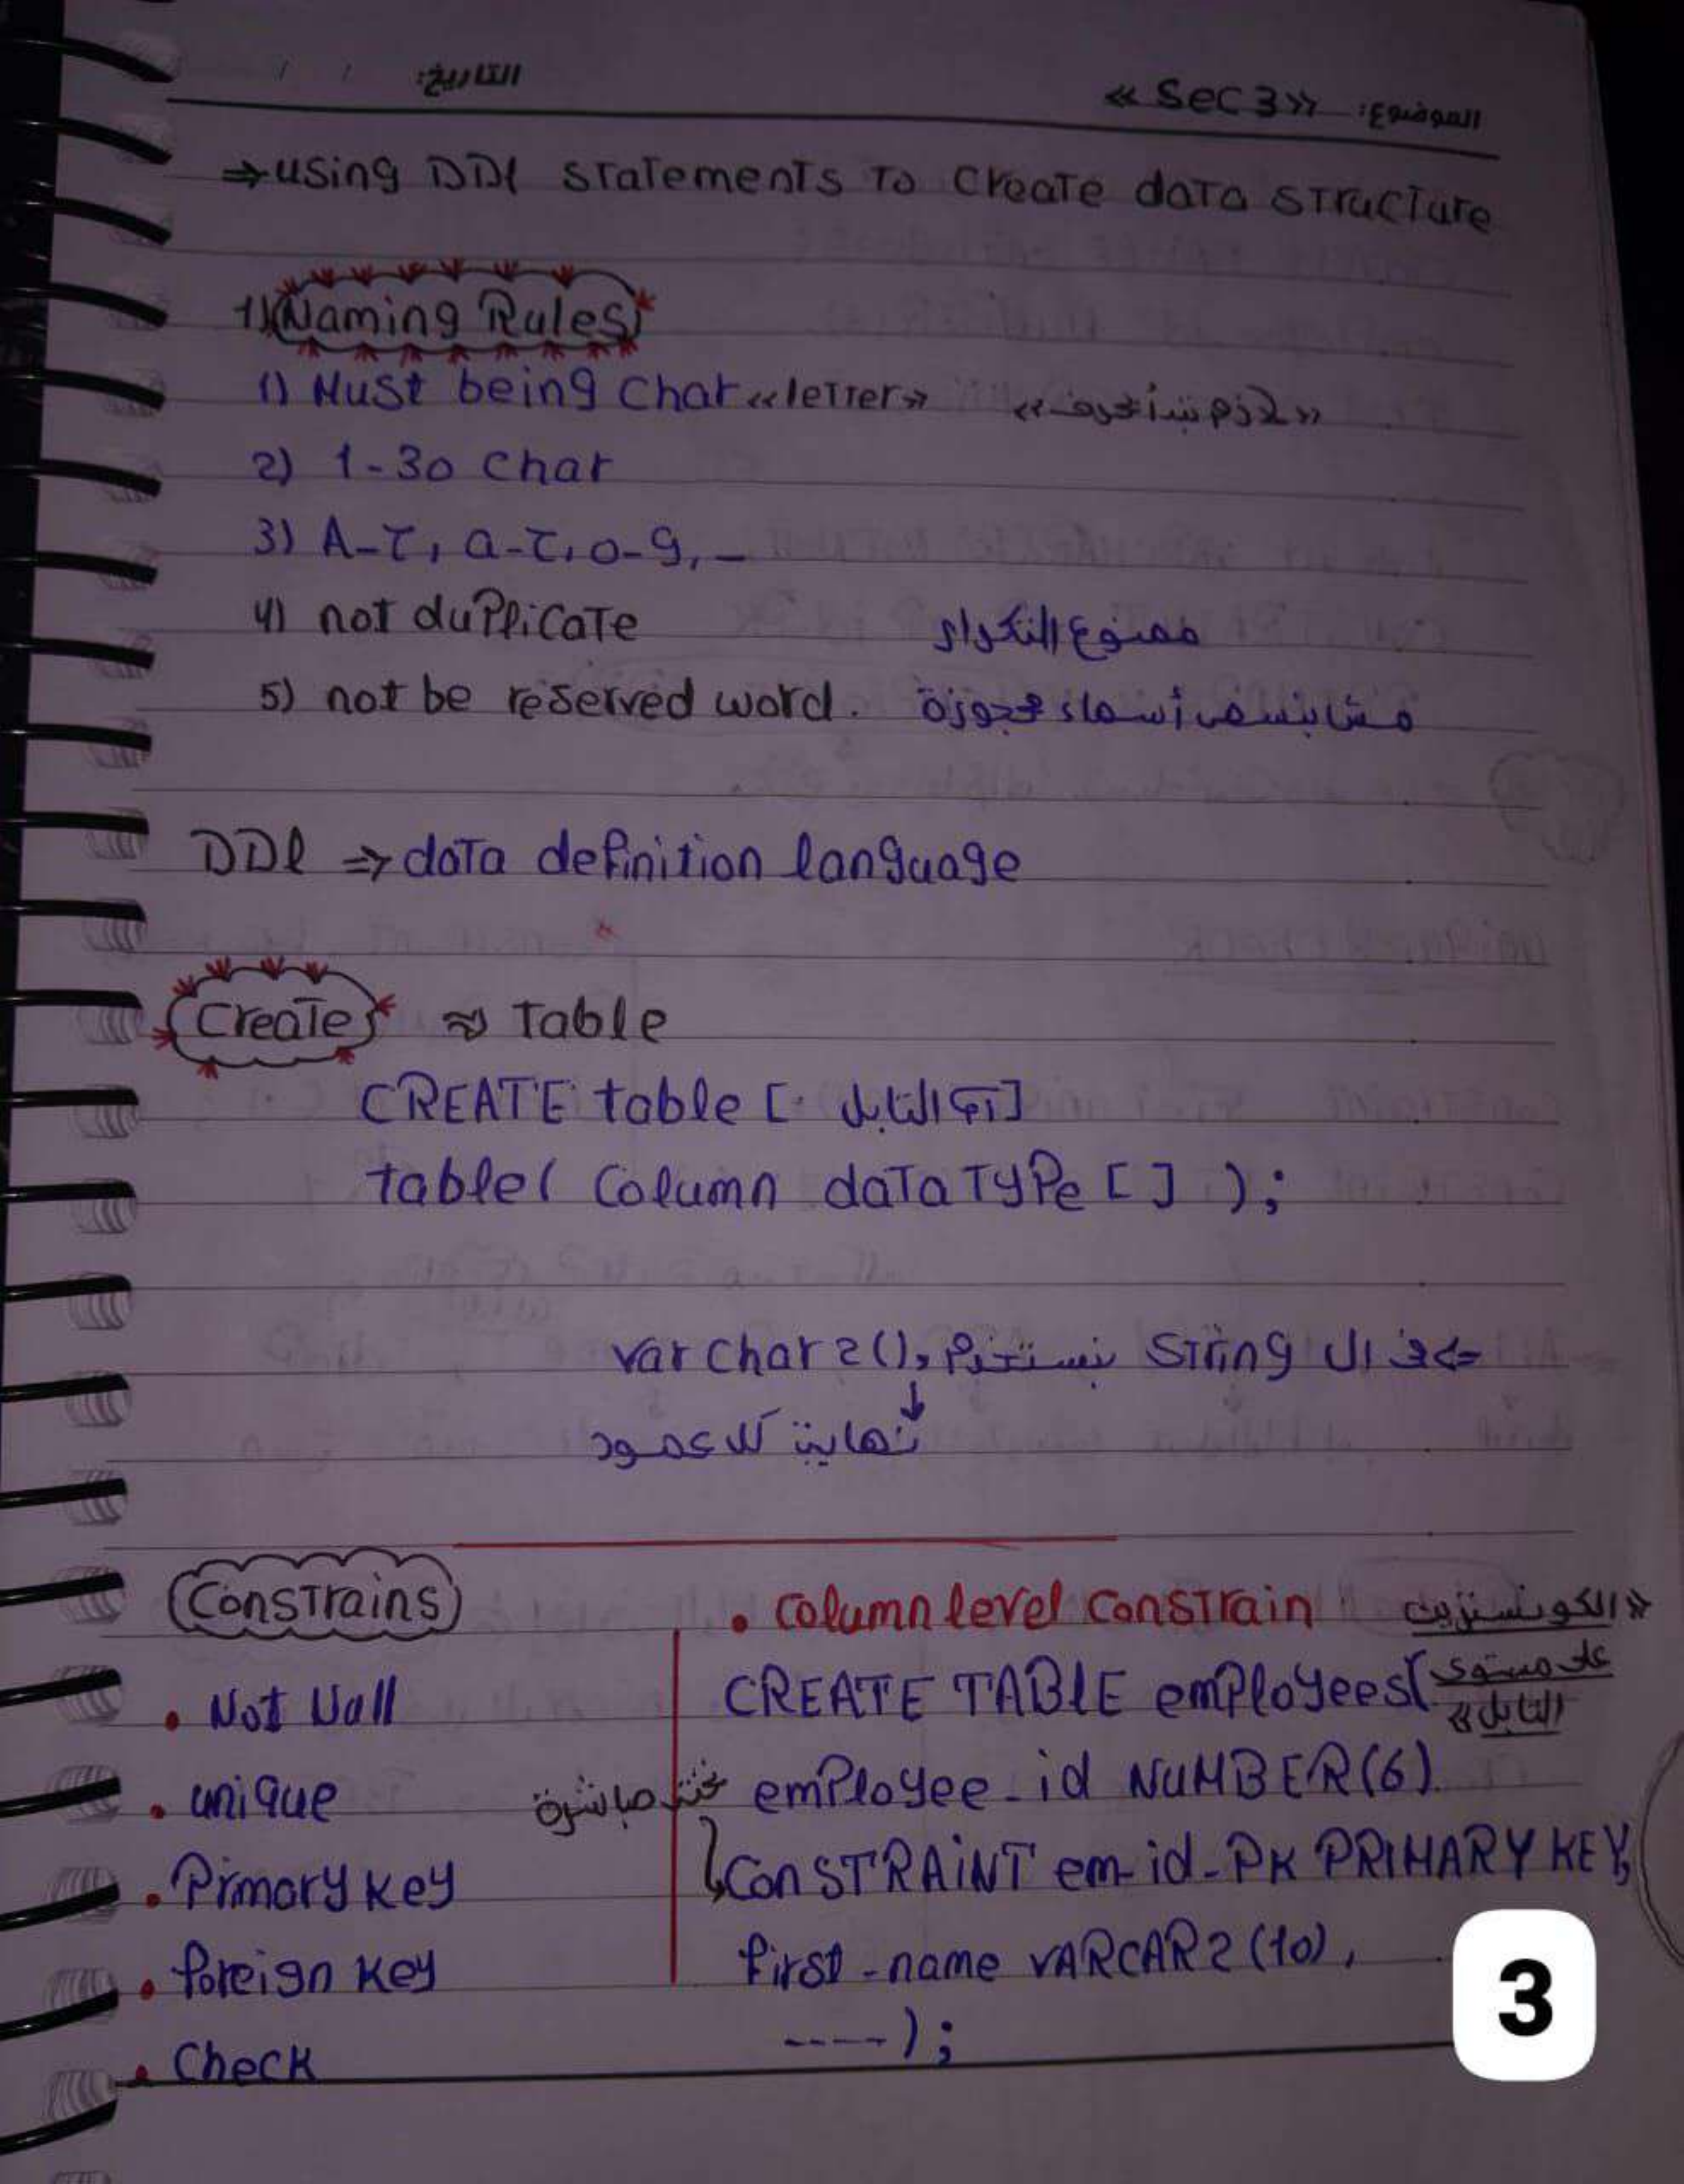 التاريخ: / /
الموضوع: «Sec 3»
⇒ using DDl statements to create data structure
1) Naming Rules
1) Must being Char «letter» «لازم نبدأ بحرف»
2) 1-30 Char
3) A-Z, a-z, 0-9, _
4) not dupplicate ممنوع التكرار
5) not be reserved word. مش بنسمى أسماء محجوزة
DDl ⇒ data definition language
Create ⇒ Table
CREATE table [اسم التابل]
table( Column dataType [ ] );
⇐ فى ال String بنستخدم varchar2(),
↓
نهاية كل عمود
Constrains
• Not Null
• unique
• Primary key
• foreign key
• Check
• Column level Constrain «الكونسترين
على مستوى
التابل»
CREATE TABLE employees(
employee_id NUMBER(6) تحته مباشرة
CONSTRAINT em_id_PK PRIMARY KEY,
first_name VARCAR2(10),
----);
3